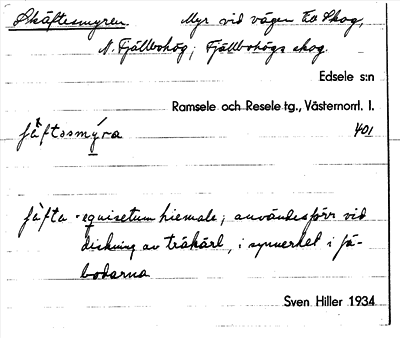 Skäftesmyren. Myr vid vägen t.o Skog,
N. Fjällbohög; Fjällbohögs skog.
Edsele s:n
Ramsele och Resele tg., Västernorrl. l.
ʃä̀ftəsmý̱ra 401
ʃä̀fta - equisetum hiemale; användes förr vid
diskning av träkärl, i synnerhet i fä-
bodarna
Sven Hiller 1934